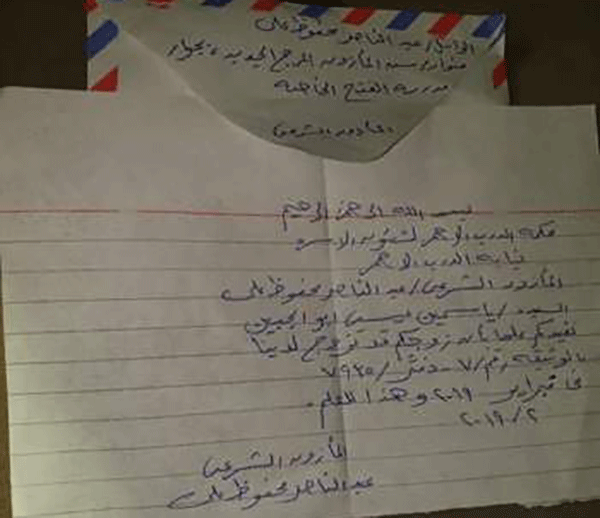 الراسل / عبد الناصر محفوظ على
المأذون المرج الجديدة بجوار
مدرسة الفتح الخاصة
المأذون الشرعى
بسم الله الرحمن الرحيم
محكمة الدرب الاحمر لشئون الاسرة
نيابة الدرب الاحمر
المأذون الشرعى / عبد الناصر محفوظ على
السيده / ياسمين ابو العينين
نفيدكم علما بأن زوجكم قد تزوج لدينا
بالوثيقة رقم / ٧ - دفتر / ٧٩٤٥
فبراير ٢٠١٩ وهذا للعلم .
٢٠١٩/٢
المأذون الشرعى
عبد الناصر محفوظ على